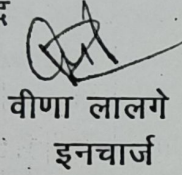 वीणा लालगे
इनचार्ज